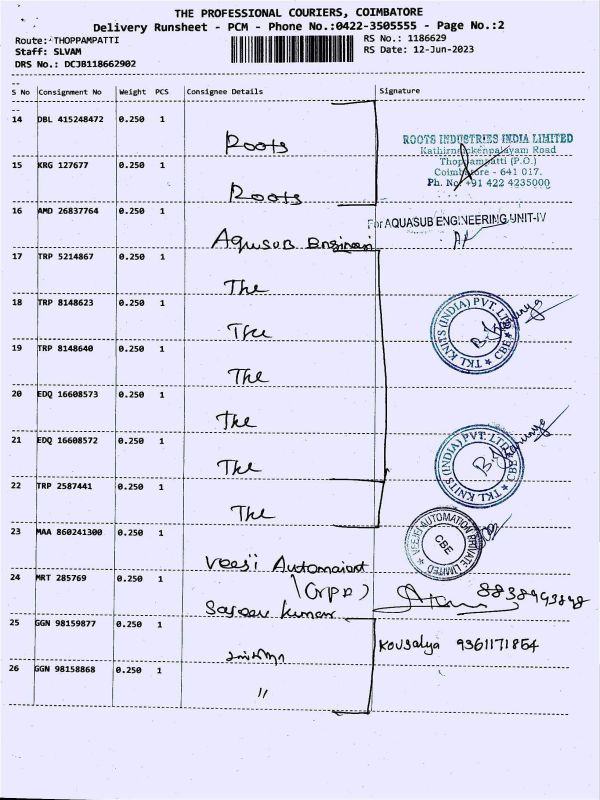 THE PROFESSIONAL COURIERS, COIMBATORE
Delivery Runsheet - PCM - Phone No.:0422-3505555 - Page No.:2
Route: THOPPAMPATTI
Staff: SLVAM
DRS No.: DCJB118662902
RS No.: 1186629
RS Date: 12-Jun-2023
S No Consignment No Weight PCS Consignee Details Signature
14 DBL 415248472 0.250 1
Roots
ROOTS INDUSTRIES INDIA LIMITED
Kathirnaickenpalayam Road
Thoppampatti (P.O.)
Coimbatore - 641 017.
Ph. No. +91 422 4235000
15 KRG 127677 0.250 1
Roots
16 AMD 26837764 0.250 1
Aqusub
For AQUASUB ENGINEERING UNIT-IV
17 TRP 5214867 0.250 1
The
18 TRP 8148623 0.250 1
The
TKL KNITS (INDIA) PVT. LTD. CBE
19 TRP 8148640 0.250 1
The
20 EDQ 16608573 0.250 1
The
21 EDQ 16608572 0.250 1
The
TKL KNITS (INDIA) PVT. LTD. CBE
22 TRP 2587441 0.250 1
The
23 MAA 860241300 0.250 1
Veeji
VEEJEI AUTOMATION PRIVATE LIMITED
CBE
24 MRT 285769 0.250 1
kumar
25 GGN 98159877 0.250 1
Kousalya 9361171854
26 GGN 98158868 0.250 1
"